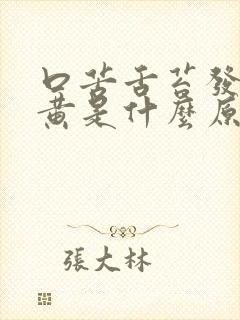 口苦舌苔發
黄是什麼原
張大林